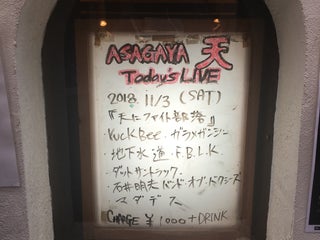 ASAGAYA 天
Today's LIVE
2018 11/3 (SAT)
『天にファイト部落』
・YUCK Bee・ガラメガンジー
・地下水道・F.B.L.K
・ダットサントラック・
・石井明夫バンド・オブ・ドクシーズ
マダデス
CHARGE ¥1000+DRINK